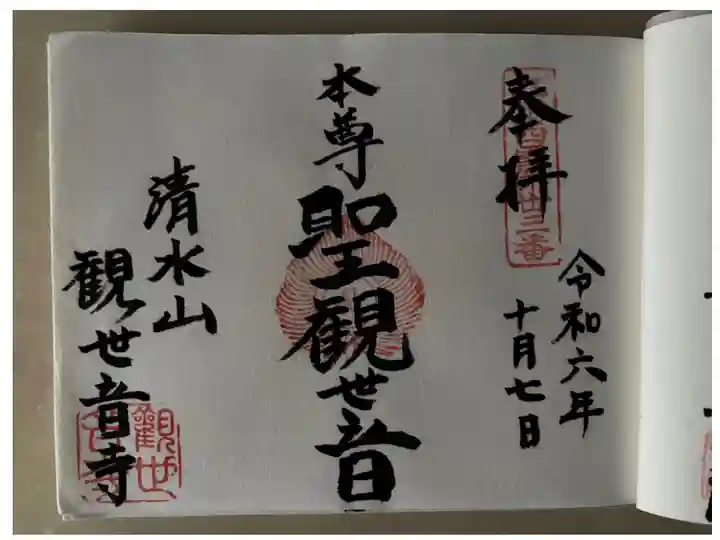 奉拝
令和六年
十月七日
本尊
聖観世音
清水山
観世音寺